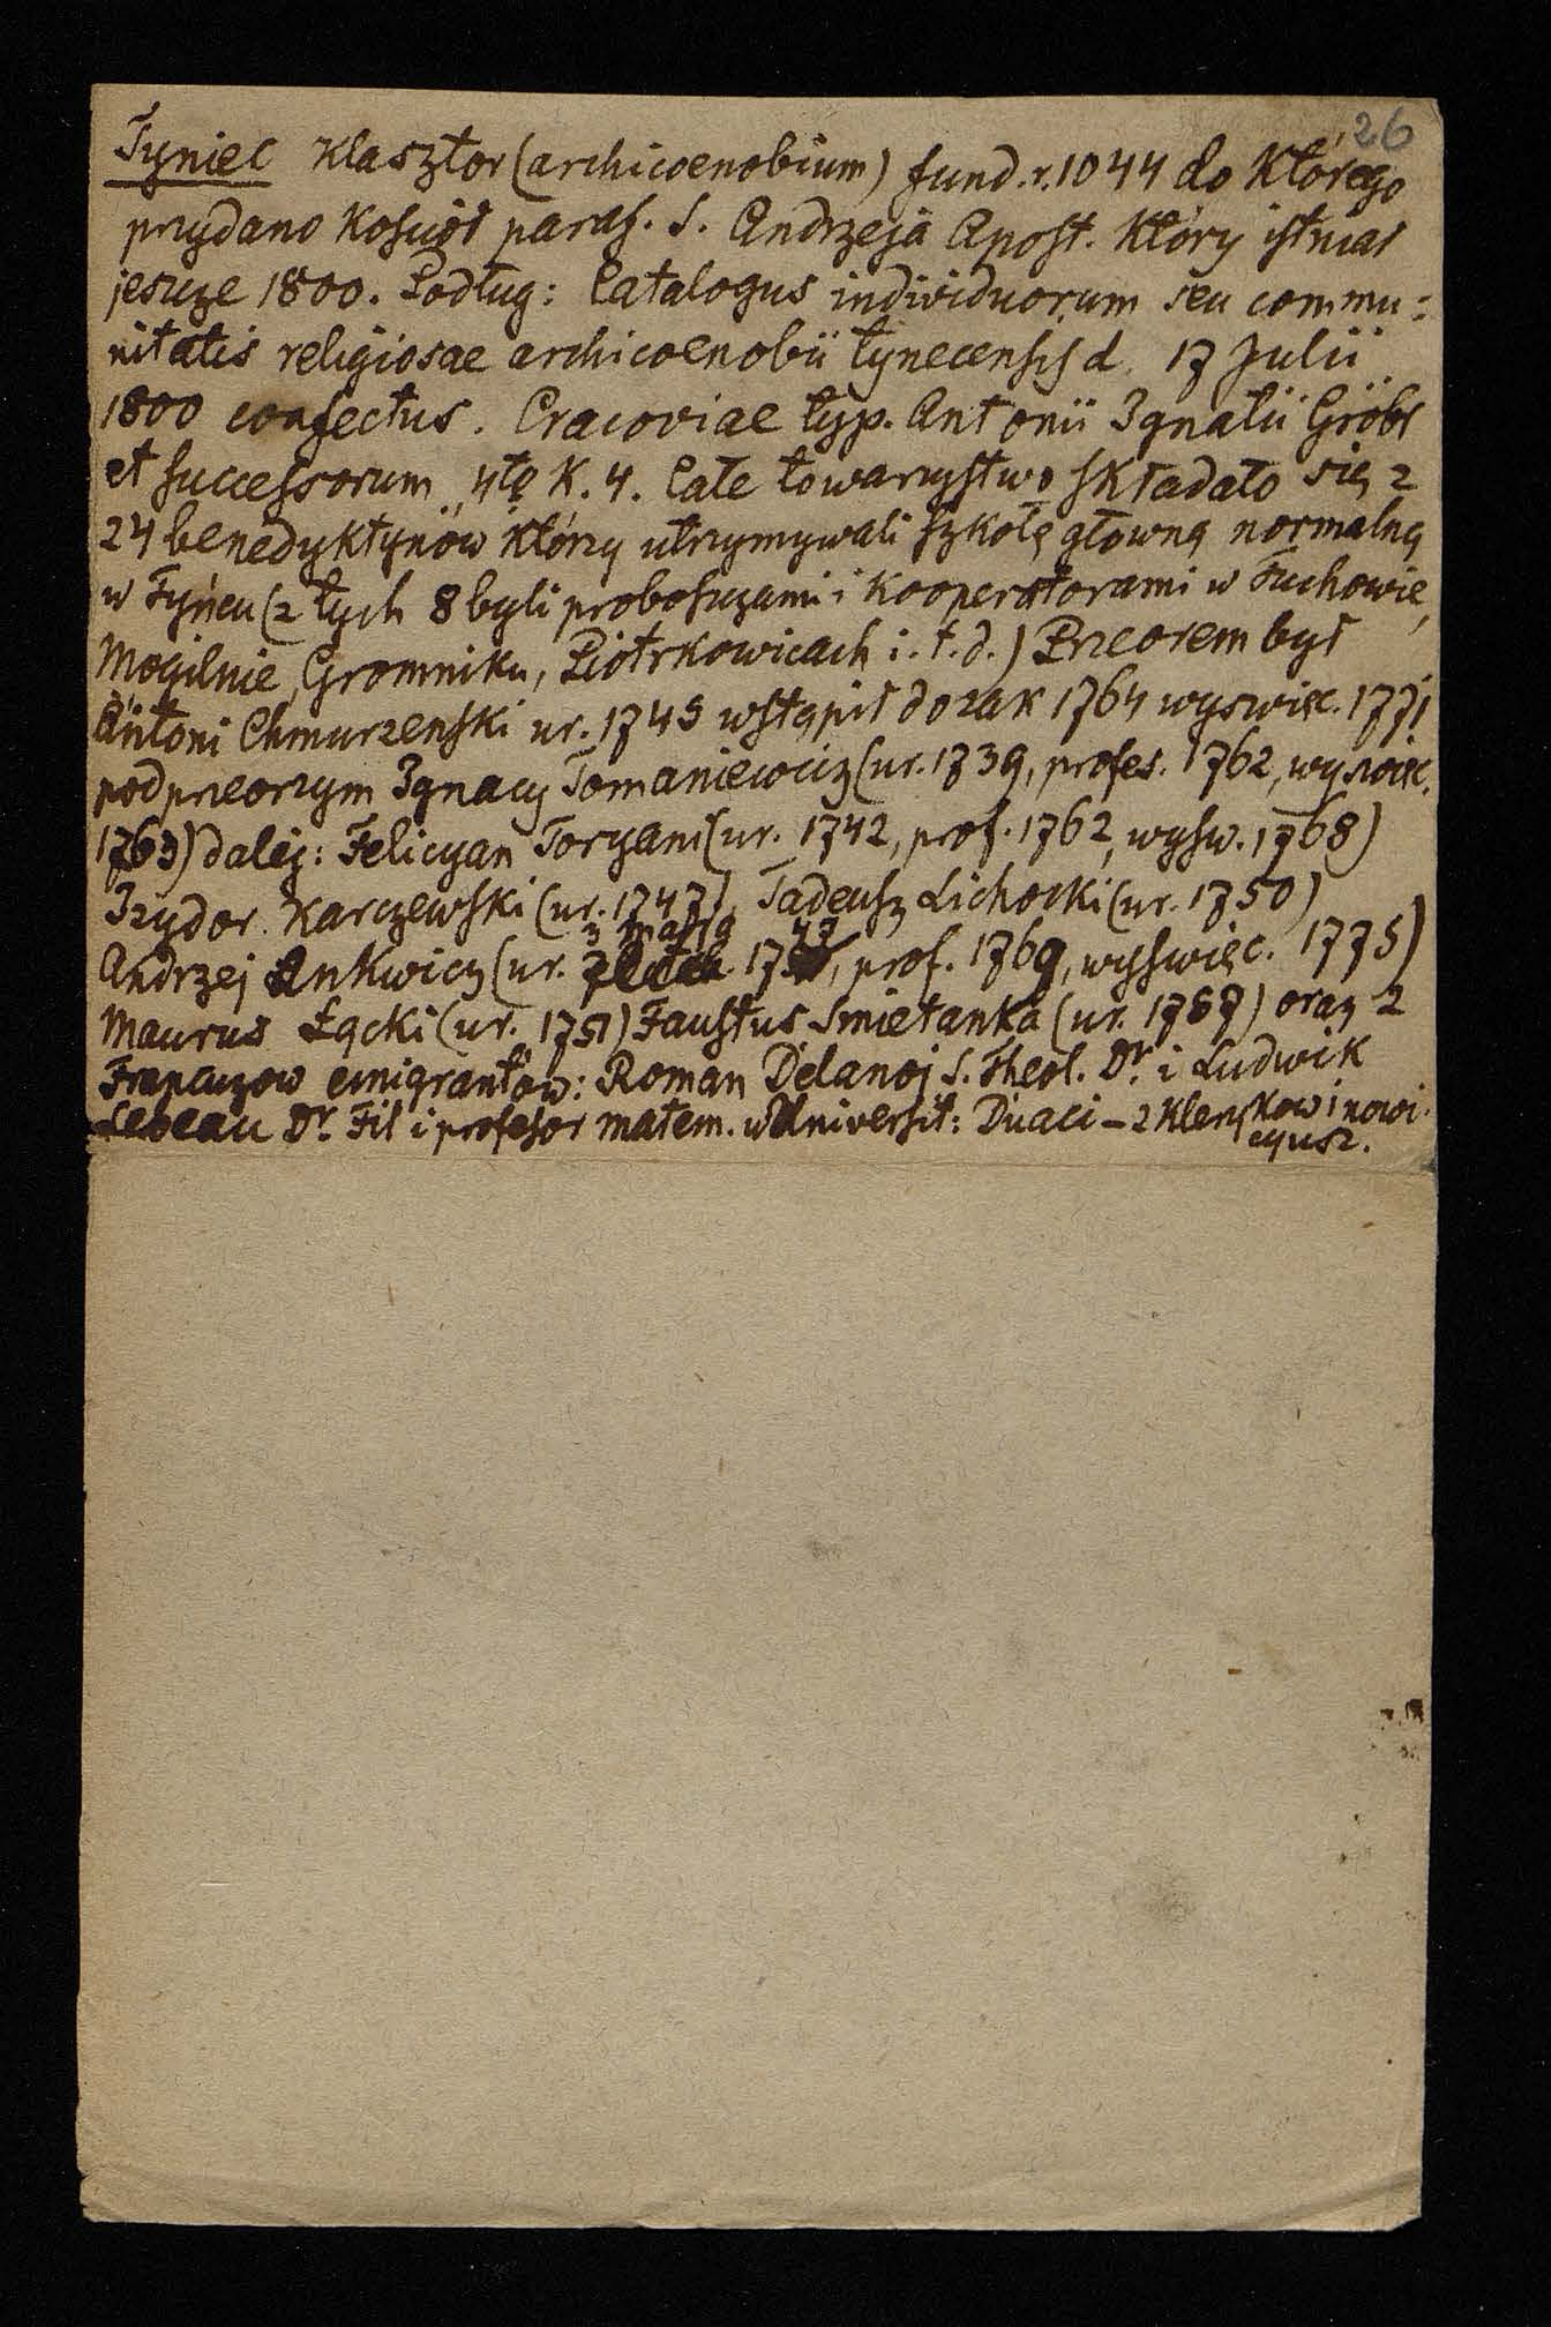 26
Tyniec Klasztor (archicoenobium) fund. r. 1044 do Którego
przydano Kościół paraf. S. Andrzeja Apost. Który istniał
jeszcze 1800. Podług: Catalogus individuorum seu commu:
nitatis religiosae archicoenobii tynecensis d. 17 Julii
1800 confectus. Cracoviae typ. Antonii Ignatii Gröbl
et successorum, 4tę K. 4. Całe towarzystwo składało się z
24 benedyktynów którzy utrzymywali szkołę główną normalną
w Tyńcu (z tych 8 byli proboszczami i Kooperatorami w Tuchowie,
Mogilnie, Gromniku, Piotrkowicach i. t. d.) Przeorem był
Antoni Chmurzenski ur. 1745 wstąpił do zak 1764 wyswięc. 1771
podprzeorzym Ignacy Tomaniewicz (ur. 1739, profes. 1762, wyswięc.
1763) dalej: Felicyan Toryani (ur. 1742, prof. 1762, wysw. 1768)
Izydor Karczewski (ur. 1747), Tadeusz Lichocki (ur. 1750)
Andrzej Ankwicz (ur. 3 maja 1747, prof. 1769, wyswięc. 1775)
Maurus Łącki (ur. 1751) Faustus Smietanka (ur. 1757) oraz 2
Francuzow emigrantów: Roman Delanoj S. Theol. Dr. i Ludwik
Lebeau Dr. Fil i profesor matem. w Universit: Duaci – 2 Klerykow i nowi
cyusz.